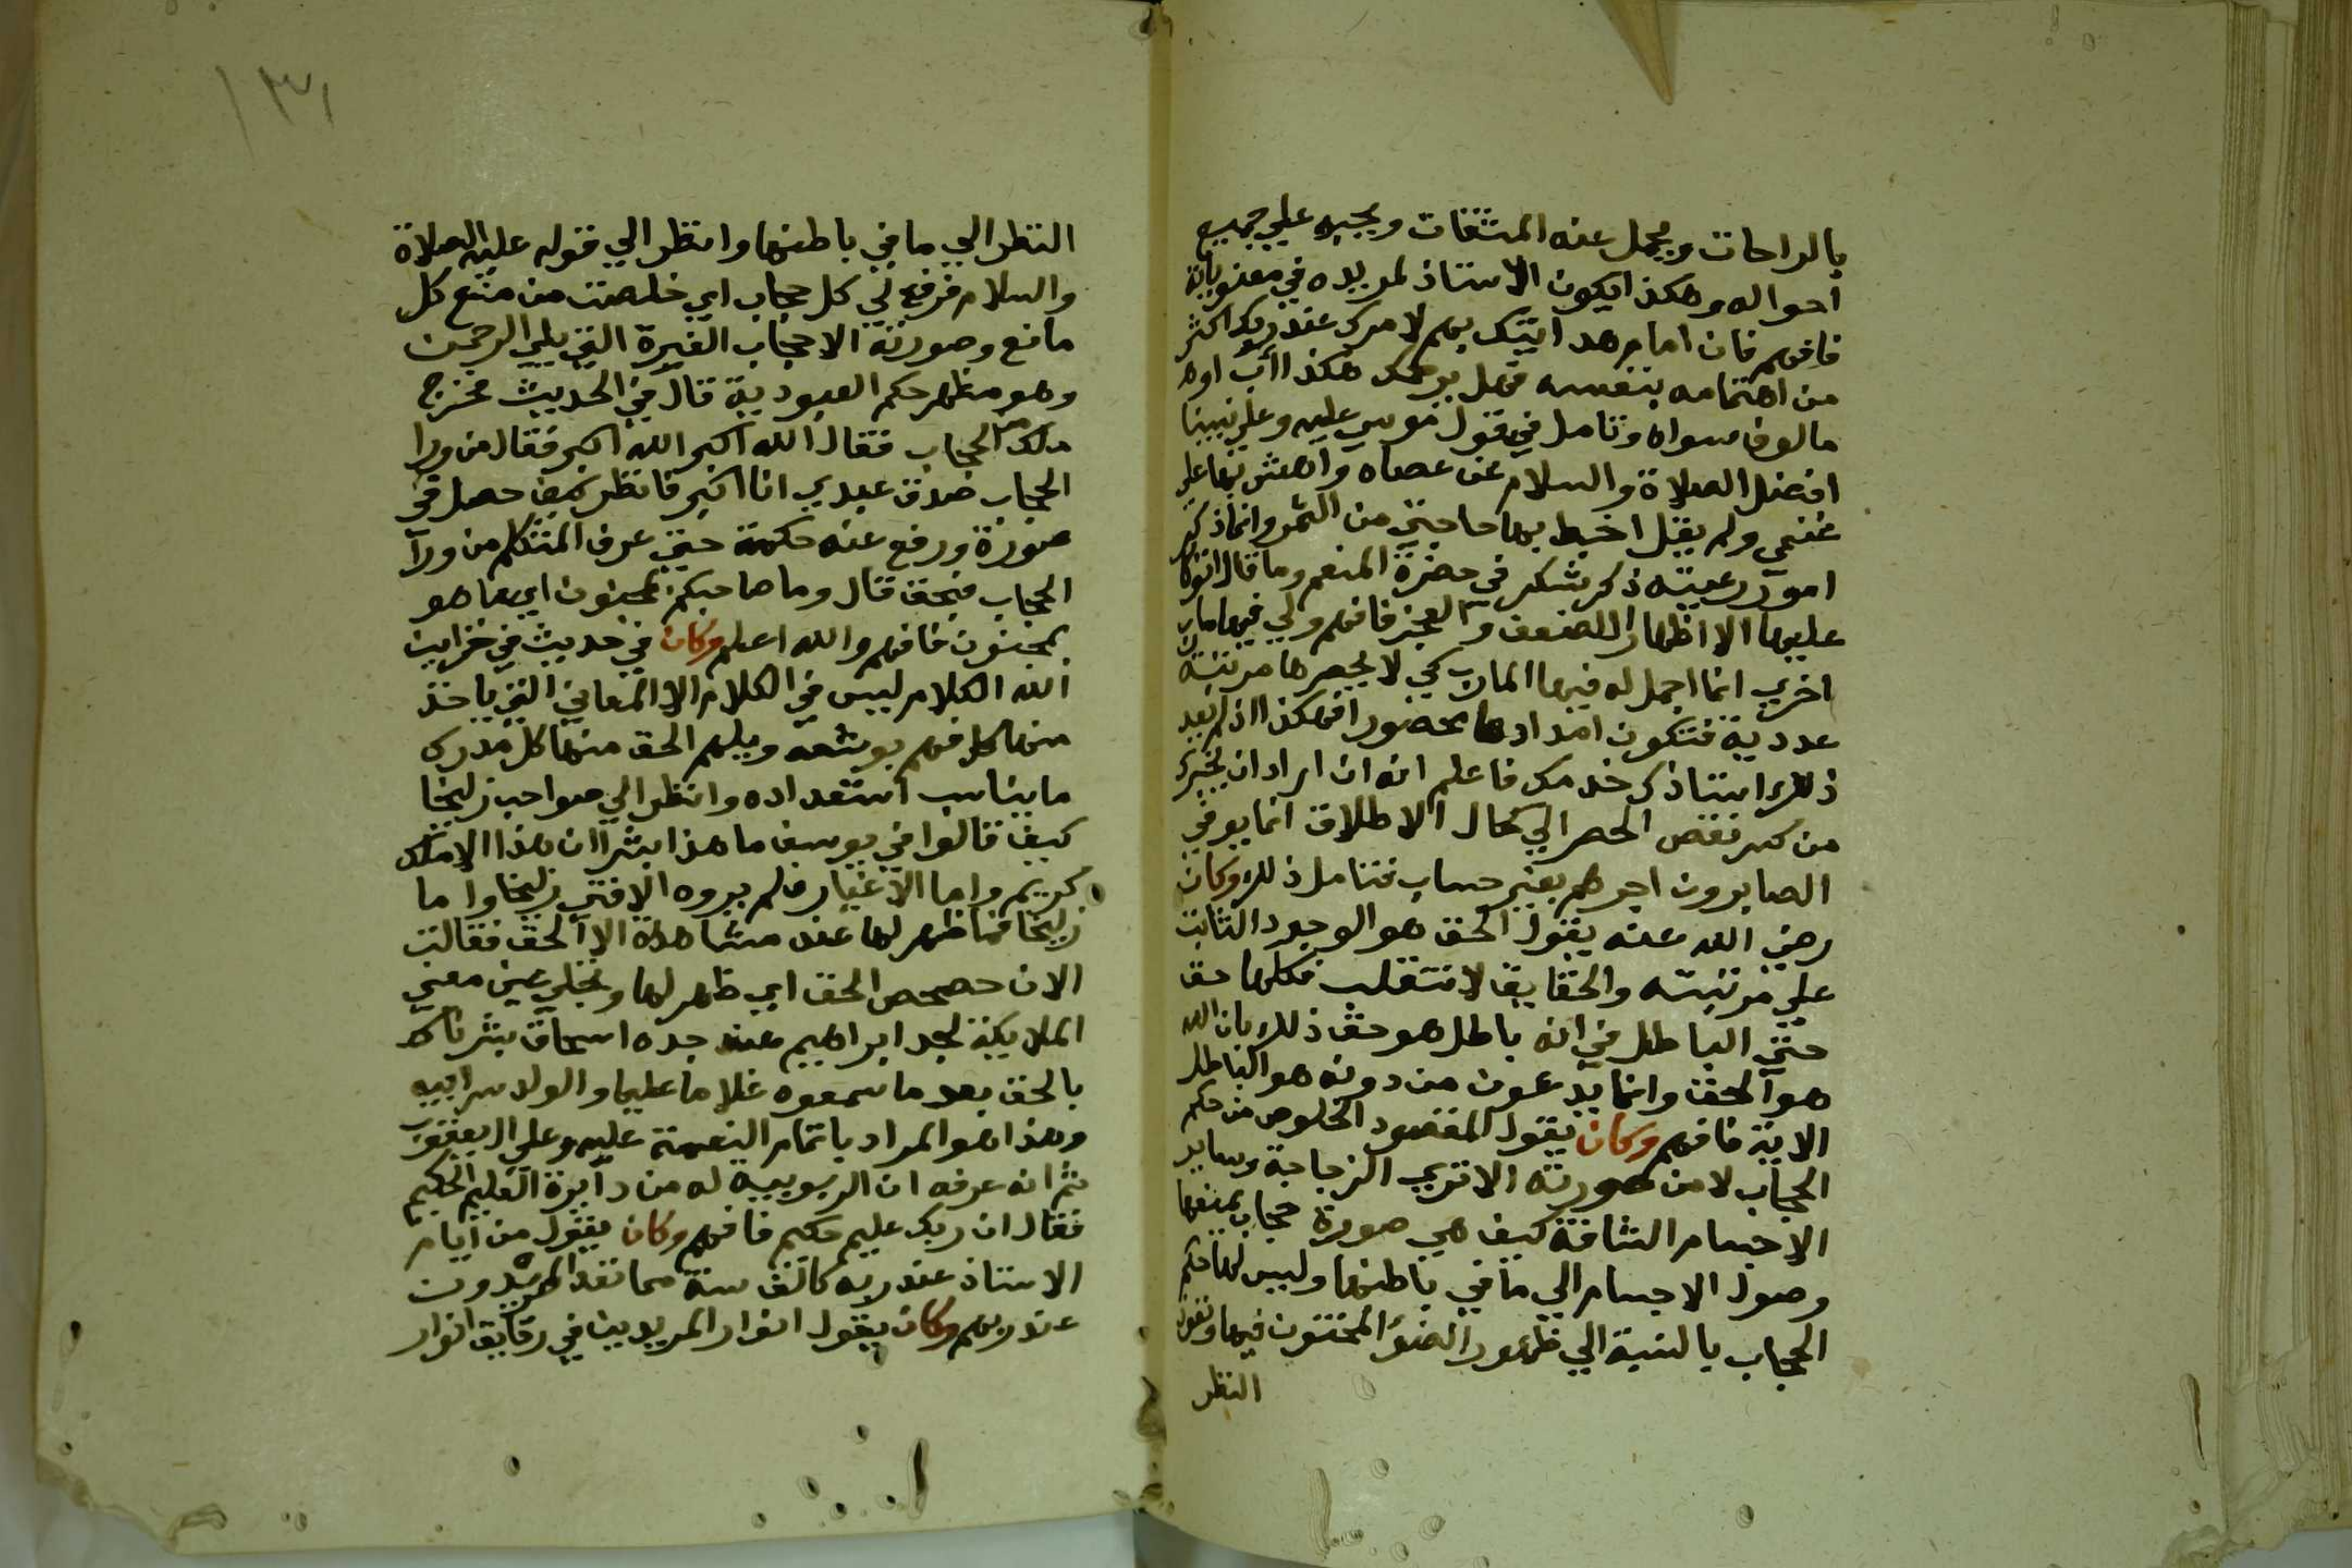 بالراحات ويحمل عنه المشقات ويحبه علي جميع
احواله وهكذا يكون الاستاذ لمريده في معنوياته
فافهم فان امام هداتيك بهم لامرك عند ربك اكثر
من اهتمامه بنفسه فهل يوجد هكذا أب او
مالوف سواه وتامل في قول موسي عليه وعلي نبينا
افضل الصلاة والسلام عن عصاه واهش بها علي
غنمي ولم يقل اخبط بها حاجتي من الثمر وانما ذكر
امور رعيته ذكر شكر في حضرة المنعم وما قال اتوكا
عليها الا اظهارا للضعف والعجز فافهم ولي فيها مارب
اخري انما اجمل له فيها المارب كي لا يحصرها مرتبة
عددية فتكون امدادها محصورا فهكذا اذا لم يعد
ذلك استاذك خدمك فاعلم انه ان اراد ان يخبرك
من كسر نقص الحصر الي كمال الاطلاق انما يوفي
الصابرون اجرهم بغير حساب فتامل ذلك وكان
رضي الله عنه يقول الحق هو الوجود الثابت
علي مرتبته والحقايق لا تنقلب فكلها حق
حتي الباطل في انه باطل هو حق ذلك بان الله
هو الحق وانما يدعون من دونه هو الباطل
الاية فافهم وكان يقول المقصود الخلوص من حكم
الحجاب لا من صورته الا تري الزجاجة وساير
الاجسام الشافة كيف هي صورة حجاب يمنعها
وصول الاجسام الي ما في باطنها وليس لها حكم
الحجاب بالنسبة الي ظهور الضوء المختون فيها ونفوذ
النظر
١٣١
النظر الي ما في باطنها وانظر الي قوله عليه الصلاة
والسلام فرفع لي كل حجاب اي خلصت من منع كل
مانع وصورته الا حجاب الغيرة التي يلي الرحمن
وهو مظهر حكم العبودية قال في الحديث فخرج
ملك من الحجاب فقال الله اكبر الله اكبر فقال من ورا
الحجاب صدق عبدي انا اكبر فانظر كيف حصل في
صورة ورفع عنه حكمه حتي عرف المتكلم من ورآ
الحجاب فبحق قال وما صاحبكم بمجنون اي ما هو
بمجنون فافهم والله اعلم وكان في حديث في خزاين
الله الكلام ليس في الكلام الا المعاني التي ياخذ
منها كل فهم بوسعه ويلهم الحق منها كل مدرك
ما يناسب استعداده وانظر الي صواحب زليخا
كيف قالوا في يوسف ما هذا بشرا ان هذا الا ملك
كريم واما الاغيار فلم يروه الا فتي زليخا واما
زليخا فما ظهر لها عند مشاهدة الا الحق فقالت
الان حصحص الحق اي ظهر لها وتجلي عين معني
الملايكة لجد ابراهيم عند جده اسحاق بشرناك
بالحق بعد ما سمعوه غلاما عليما والولد سر ابيه
وهذا هو المراد باتمام النعمة عليه وعلي ال يعقوب
ثم انه عرفه ان الربوبية له من دآيرة العليم الحكيم
فقال ان ربك عليم حكيم فافهم وكان يقول من ايام
الاستاذ عند ربه كالف سنة مما تعد المريدون
عند ربهم وكان يقول انوار المريدين في رقايق انوار